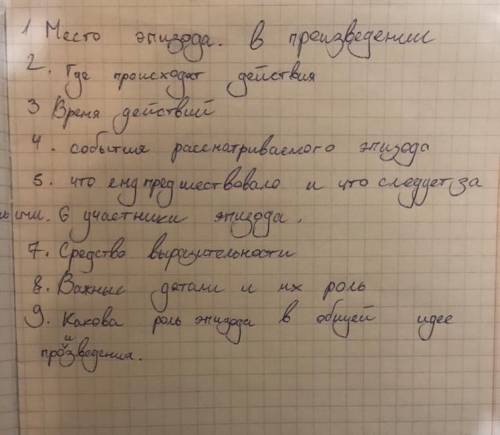 1 Место эпизода. в произведении
2. Где происходят действия
3 Время действий
4. события рассматриваемого эпизода
5. что ему предшествовало и что следует за
ним. 6 участники эпизода.
7. Средства выразительности
8. Важные детали и их роль
9. Какова роль эпизода в общей идее
произведения.